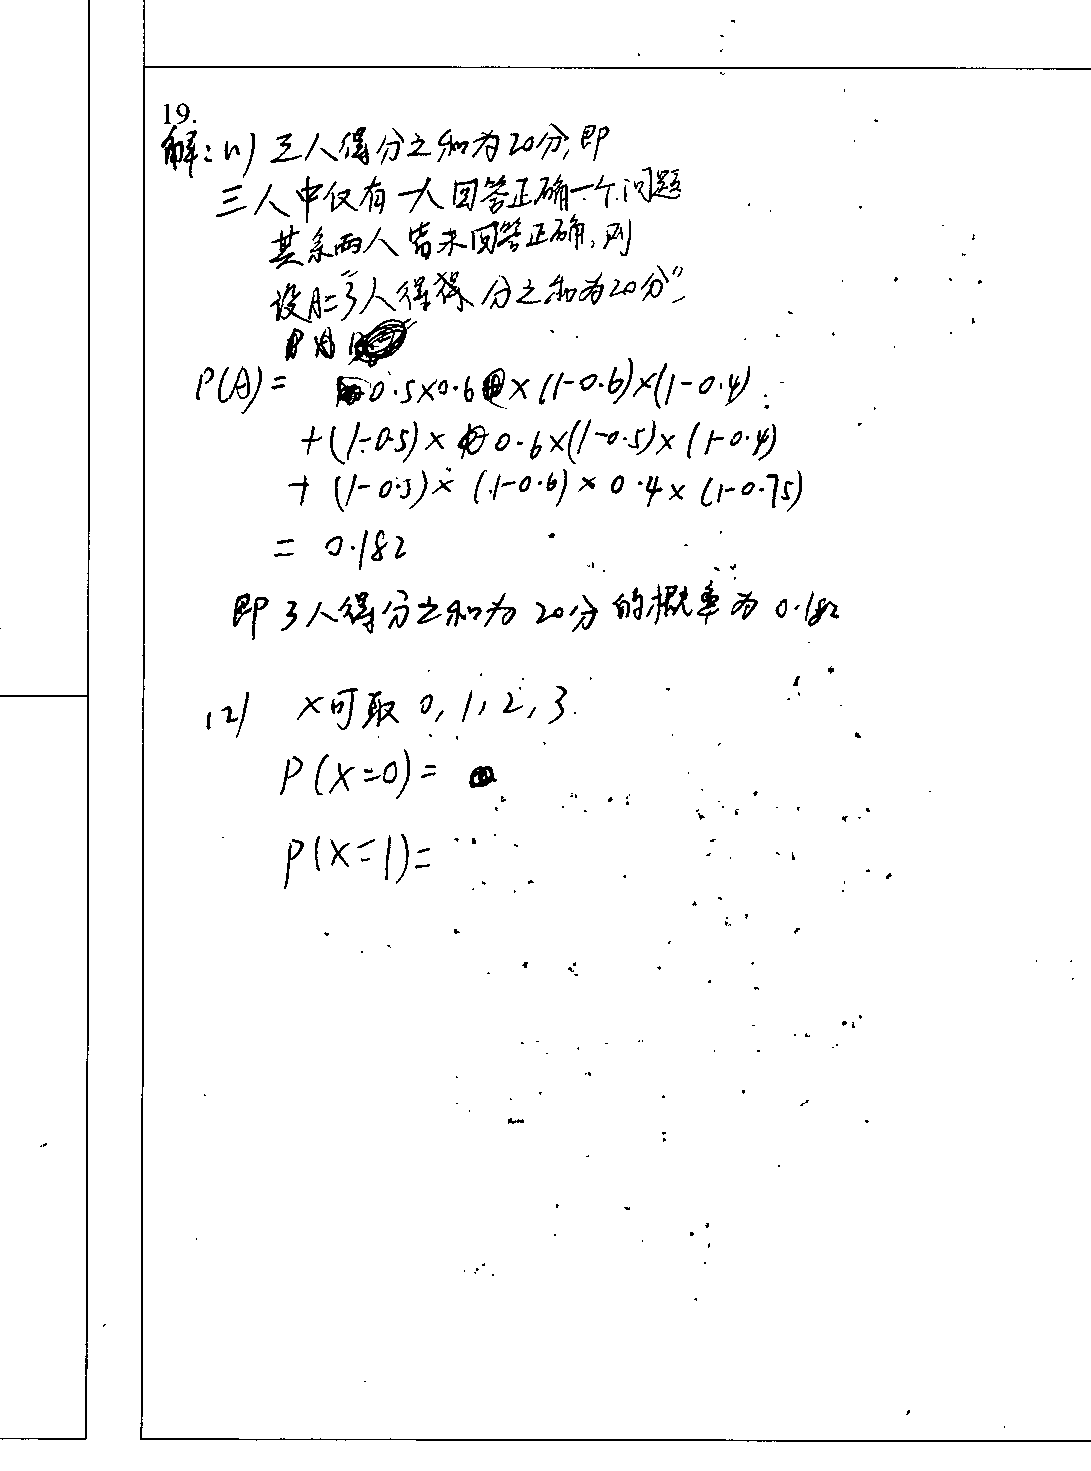 19.
解:(1) 三人得分之和为20分,即
三人中仅有一人回答正确一个问题
其余两人皆未回答正确,则
设A="3人得得分之和为20分"
P(A)= 0.5×0.6×(1-0.6)×(1-0.4)
+(1-0.5)×0.6×(1-0.5)×(1-0.4)
+(1-0.5)×(1-0.6)×0.4×(1-0.75)
= 0.182
即3人得分之和为20分的概率为0.182
(2) X可取 0, 1, 2, 3.
P(X=0)=
P(X=1)=